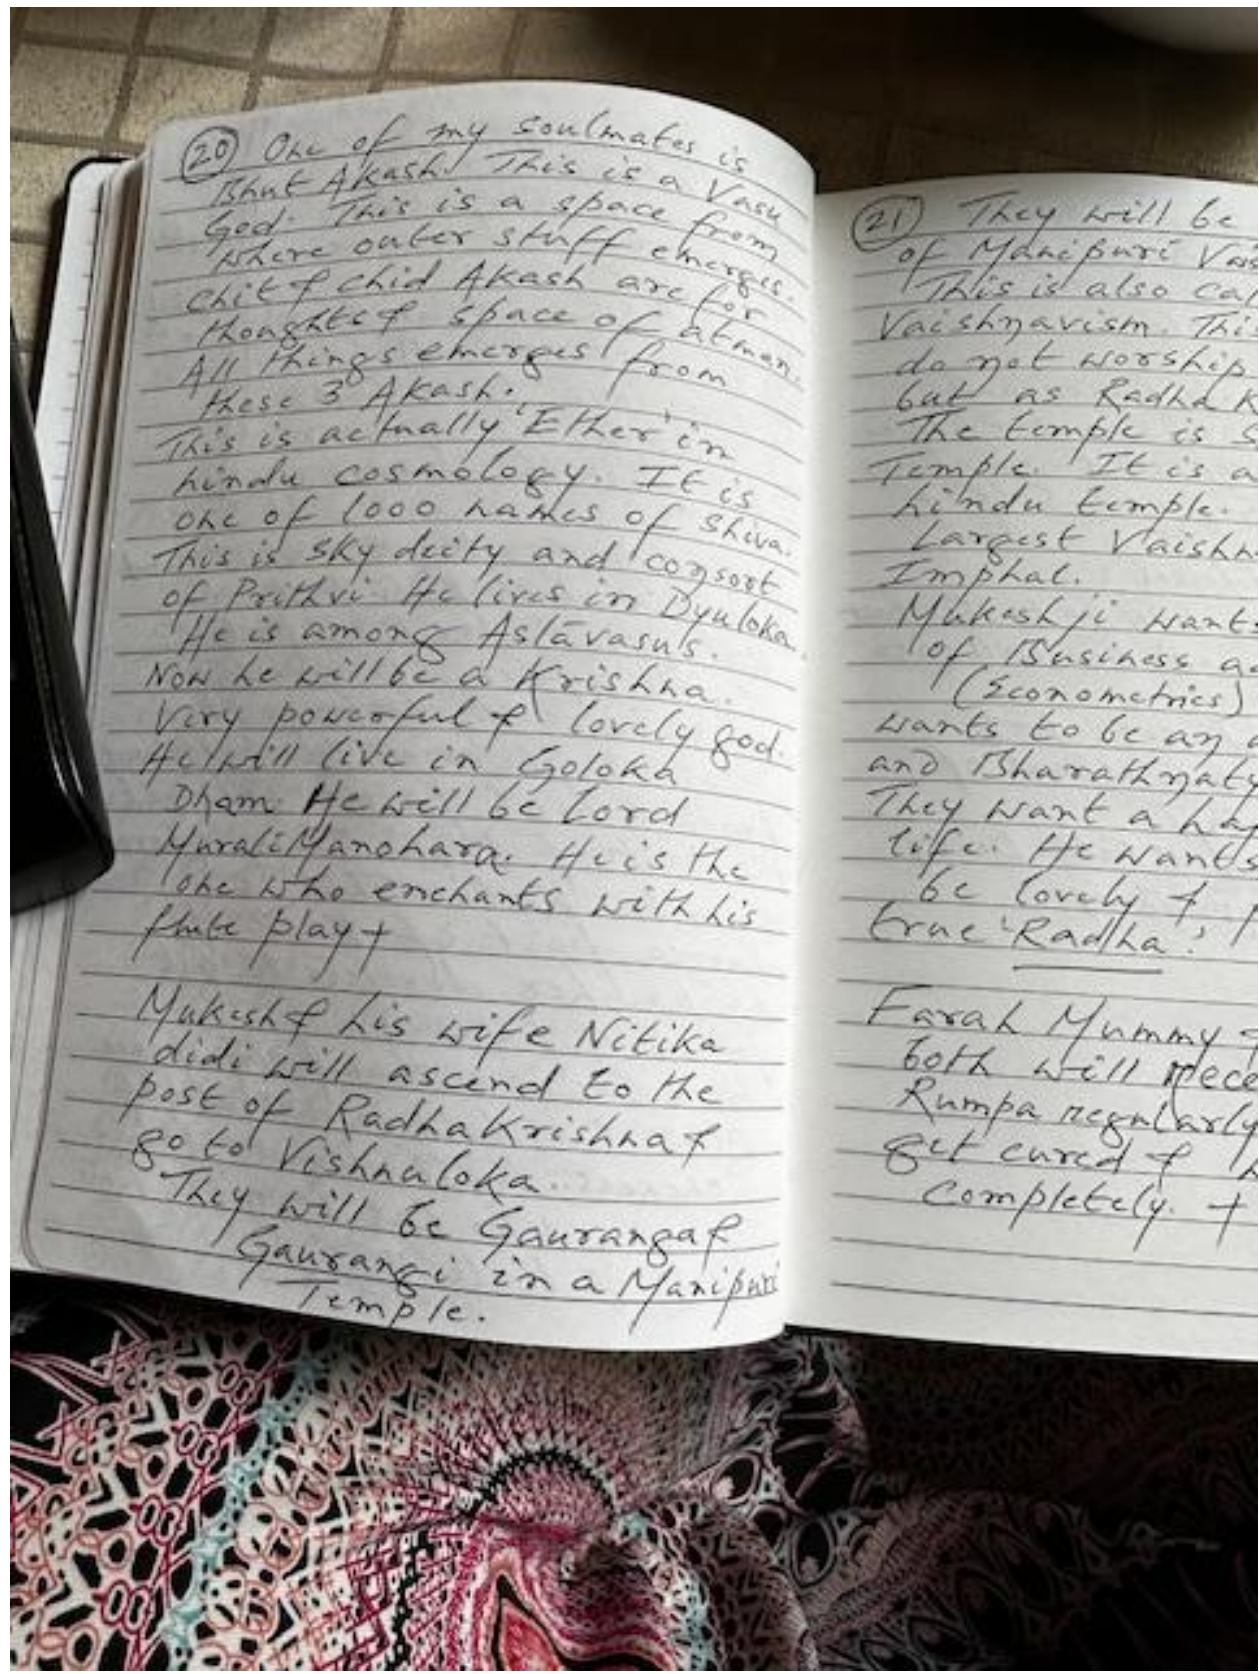 20 One of my soulmates is
Bhut Akash. This is a Vasu
God. This is a space from
where outer stuff emerges.
Chit & Chid Akash are for
thoughts & space of atman.
All things emerges from
these 3 Akash.
This is actually 'Ether' in
hindu cosmology. It is
one of 1000 names of Shiva.
This is sky deity and consort
of Prithvi. He lives in Dyuloka.
He is among Astāvasus.
Now he will be a Krishna.
Very powerful & lovely god.
He will live in Goloka
Dham. He will be Lord
Murali Manohara. He is the
one who enchants with his
flute play +
Mukesh & his wife Nitika
didi will ascend to the
post of RadhaKrishna &
go to Vishnuloka.
They will be Gauranga &
Gaurangi in a Manipuri
Temple.
21 They will be
of Manipuri
This is also
Vaishnavism.
do not worship
but as Radha
The temple is
Temple. It is a
hindu temple.
Largest
Imphal.
Mukesh ji
of Business
(Econometrics)
wants to be an
and
They want a
life. He wants
be lovely +
true 'Radha'.
Farah Mummy
both will
Rumpa regularly
get cured &
completely. +